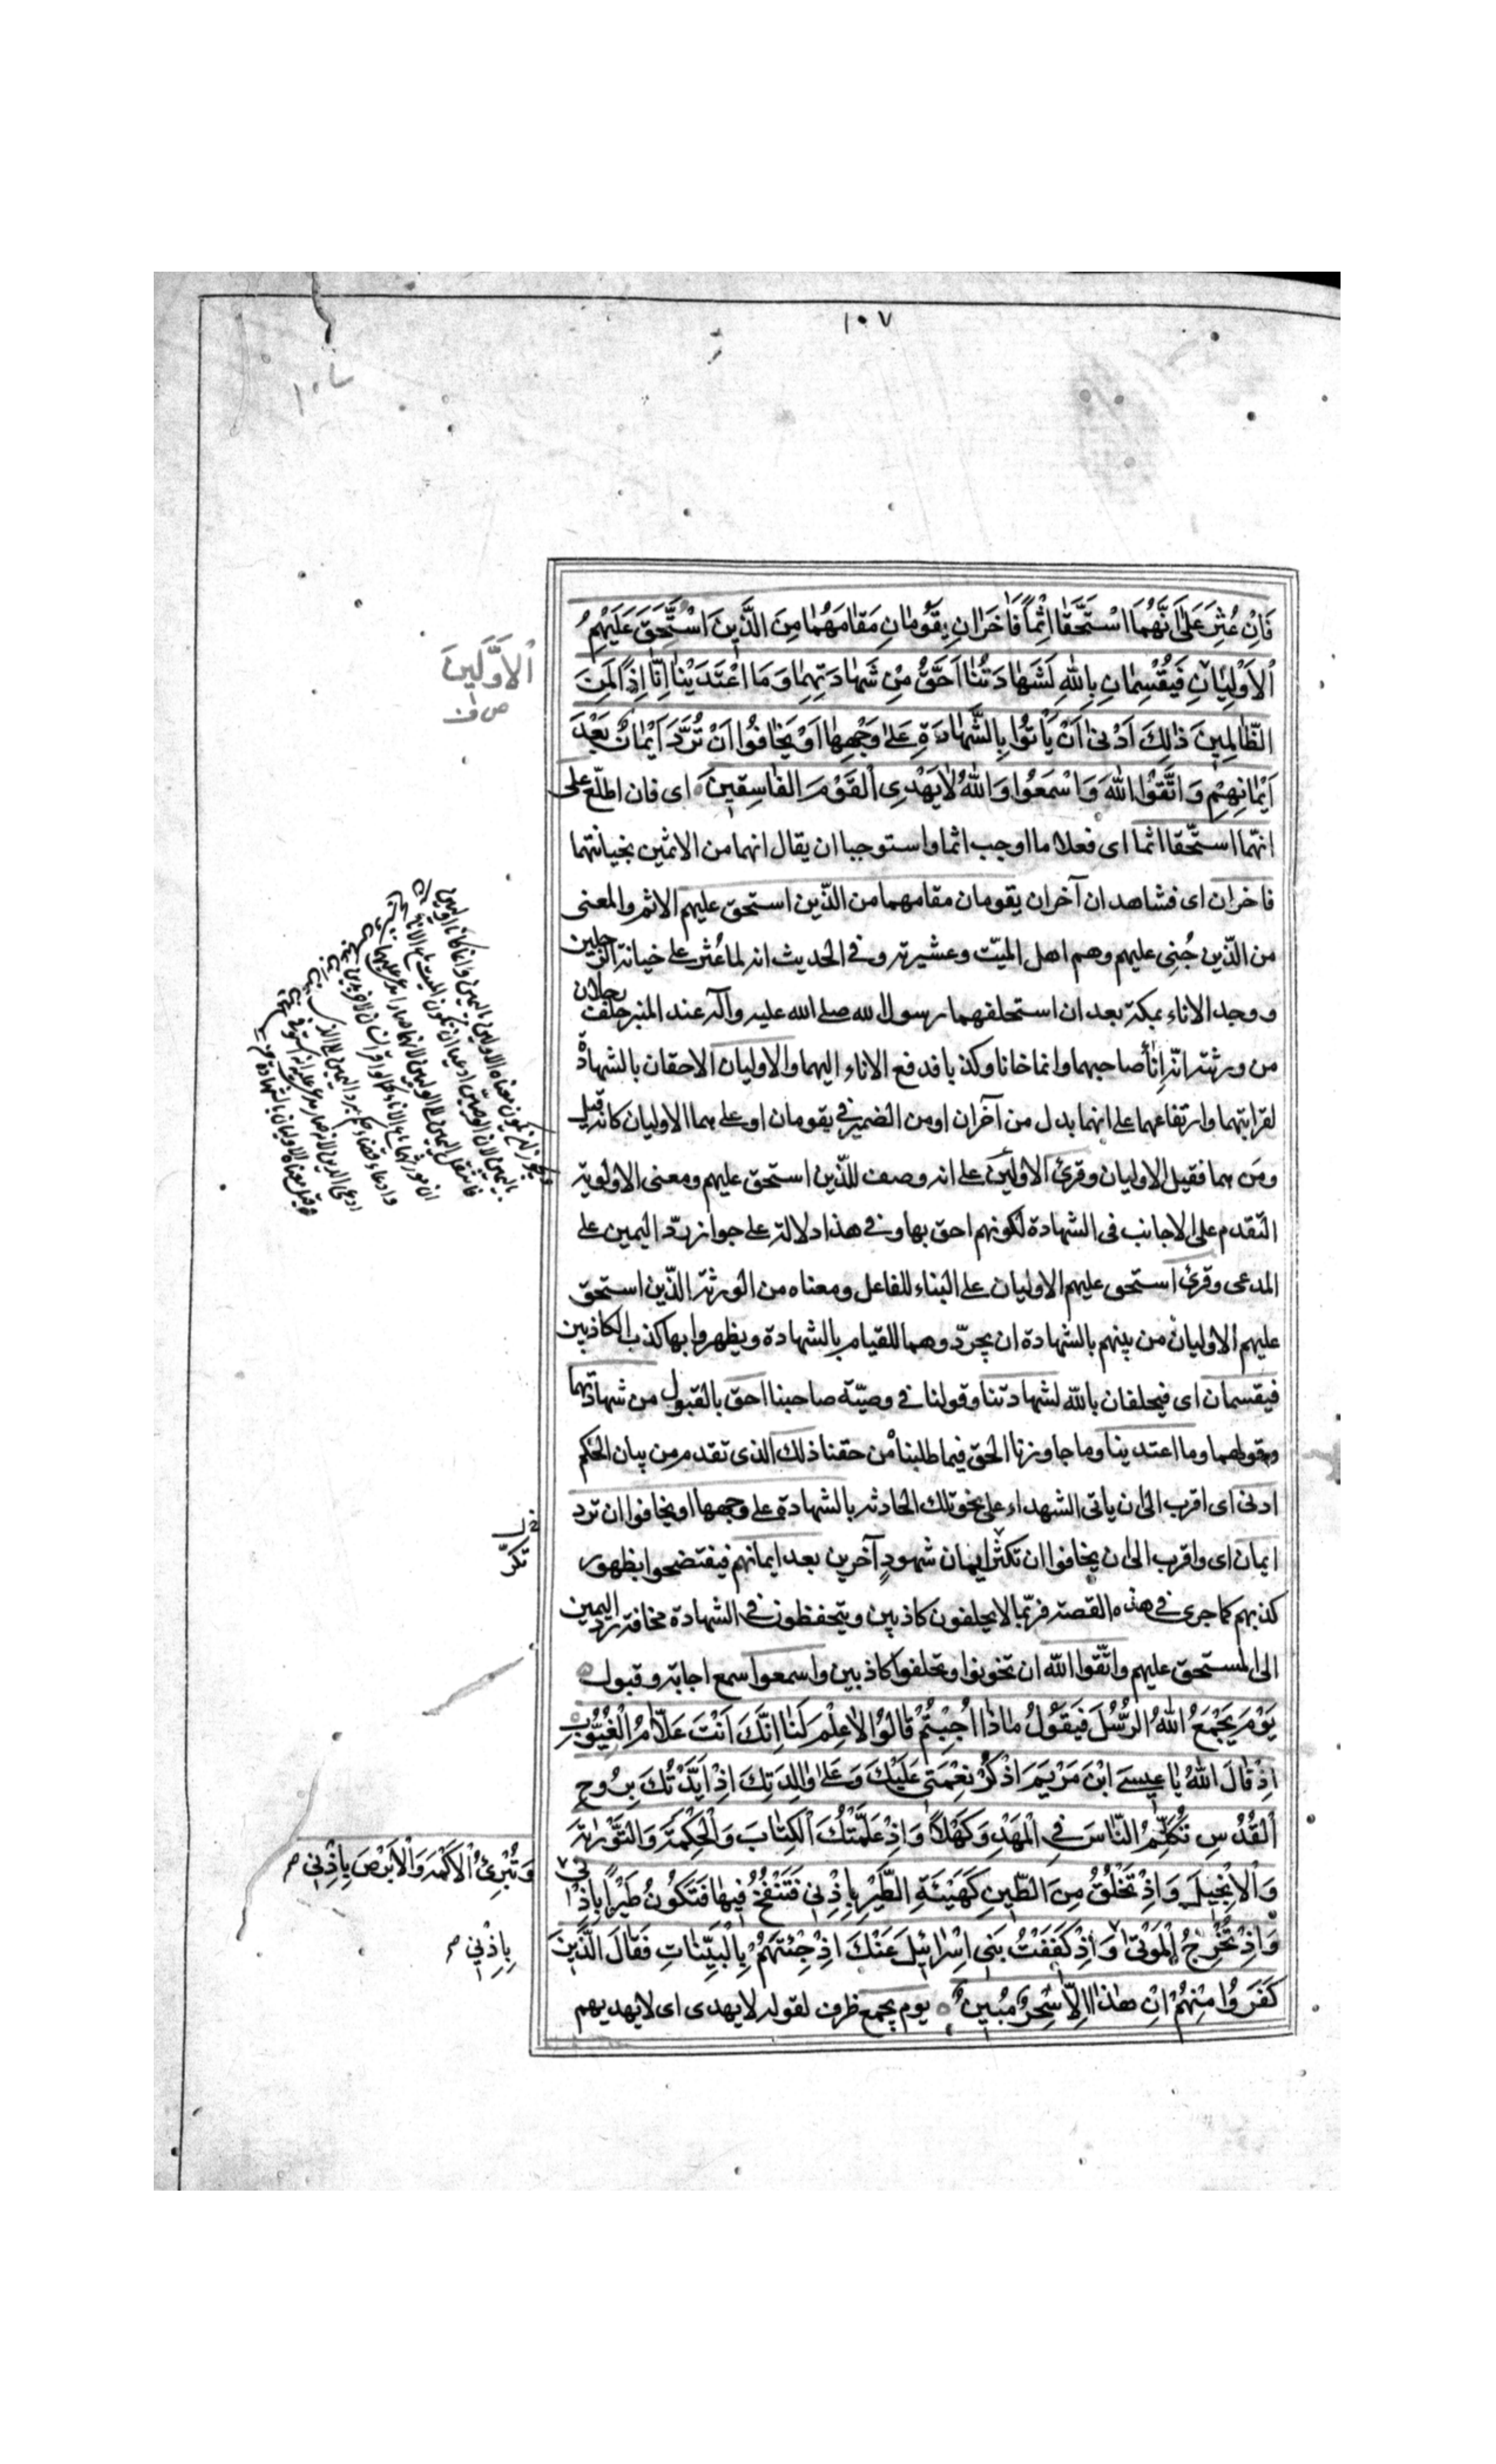 ١٠٧
فَاِنْ عُثِرَ عَلٰی اَنَّهُمَا اسْتَحَقَّا اِثْمًا فَاٰخَرَانِ يَقُومَانِ مَقَامَهُمَا مِنَ الَّذِينَ اسْتَحَقَّ عَلَيْهِمُ
الْاَوْلَيَانِ فَيُقْسِمَانِ بِاللّٰهِ لَشَهَادَتُنَا اَحَقُّ مِنْ شَهَادَتِهِمَا وَمَا اعْتَدَيْنَا اِنَّا اِذًا لَمِنَ
الظَّالِمِينَ ذٰلِكَ اَدْنٰی اَنْ يَأْتُوا بِالشَّهَادَةِ عَلٰی وَجْهِهَا اَوْ يَخَافُوا اَنْ تُرَدَّ اَيْمَانٌ بَعْدَ
اَيْمَانِهِمْ وَاتَّقُوا اللّٰهَ وَاسْمَعُوا وَاللّٰهُ لَا يَهْدِی الْقَوْمَ الْفَاسِقِينَ ای فان اطلع علی
انهما استحقا اثما ای فعلا ما اوجب اثما واستوجبا ان يقال انهما من الاثمين بخيانتهما
فاخران ای فشاهدان آخران يقومان مقامهما من الذين استحق عليهم الاثم والمعنی
من الذين جُنِی عليهم وهم اهل الميت وعشيرته وفی الحديث انه لما عُثر علی خيانة الرجلين
ووجد الاناء بمكة بعد ان استحلفهما رسول الله صلی الله عليه وآله عند المنبر حلف رجلان
من ورثته انه اناء صاحبهما وانما خانا وكذبا فدفع الاناء اليهما والاوليان الاحقان بالشهادة
لقرابتهما وارتفاعهما علی انهما بدل من آخران او من الضمير فی يقومان او علی هما الاوليان كانه قيل
ومَن هما فقيل الاوليان وقرئ الاولين علی انه وصف للذين استحق عليهم ومعنی الاولوية
التقدم علی الاجانب فی الشهادة لكونهم احق بها وفی هذا دلالة علی جواز رد اليمين علی
المدعی وقرئ استحق عليهم الاوليان علی البناء للفاعل ومعناه من الورثة الذين استحق
عليهم الاوليان من بينهم بالشهادة ان يجردوهما للقيام بالشهادة ويظهروا بها كذب الكاذبين
فيقسمان ای فيحلفان بالله لشهادتنا وقولنا فی وصيّة صاحبنا احق بالقبول من شهادتهما
وقولهما وما اعتدينا وما جاوزنا الحق فيما طلبناه من حقنا ذلك الذی تقدم من بيان الحكم
ادنی ای اقرب الی ان ياتی الشهداء علی نحو تلك الحادثه بالشهادة علی وجهها او يخافوا ان ترد
ايمان ای واقرب الی ان يخافوا ان تكثر ايمان شهودٍ آخرين بعد ايمانهم فيفتضحوا بظهور
كذبهم كما جری فی هذه القصة فربما لا يحلفون كاذبين ويتحفظون فی الشهادة مخافة رد اليمين
الی المستحق عليهم واتقوا الله ان تخونوا وتحلفوا كاذبين واسمعوا سمع اجابة وقبول
يَوْمَ يَجْمَعُ اللّٰهُ الرُّسُلَ فَيَقُولُ مَاذَا اُجِبْتُمْ قَالُوا لَا عِلْمَ لَنَا اِنَّكَ اَنْتَ عَلَّامُ الْغُيُوبِ
اِذْ قَالَ اللّٰهُ يَا عِيسَی ابْنَ مَرْيَمَ اذْكُرْ نِعْمَتِی عَلَيْكَ وَعَلٰی وَالِدَتِكَ اِذْ اَيَّدْتُكَ بِرُوحِ
الْقُدُسِ تُكَلِّمُ النَّاسَ فِی الْمَهْدِ وَكَهْلًا وَاِذْ عَلَّمْتُكَ الْكِتَابَ وَالْحِكْمَةَ وَالتَّوْرٰيةَ
وَالْاِنْجِيلَ وَاِذْ تَخْلُقُ مِنَ الطِّينِ كَهَيْئَةِ الطَّيْرِ بِاِذْنِی فَتَنْفُخُ فِيهَا فَتَكُونُ طَيْرًا بِاِذْنِی
وَاِذْ تُخْرِجُ الْمَوْتٰی وَاِذْ كَفَفْتُ بَنِی اِسْرَائِيلَ عَنْكَ اِذْ جِئْتَهُمْ بِالْبَيِّنَاتِ فَقَالَ الَّذِينَ
كَفَرُوا مِنْهُمْ اِنْ هٰذَا اِلَّا سِحْرٌ مُبِينٌ يوم يجمع ظرف لقوله لا يهدی ای لا يهديهم
الْاَوَّلِينَ
تكرّ
وَتُبْرِئُ الْاَكْمَهَ وَالْاَبْرَصَ بِاِذْنِی
بِاِذْنِی